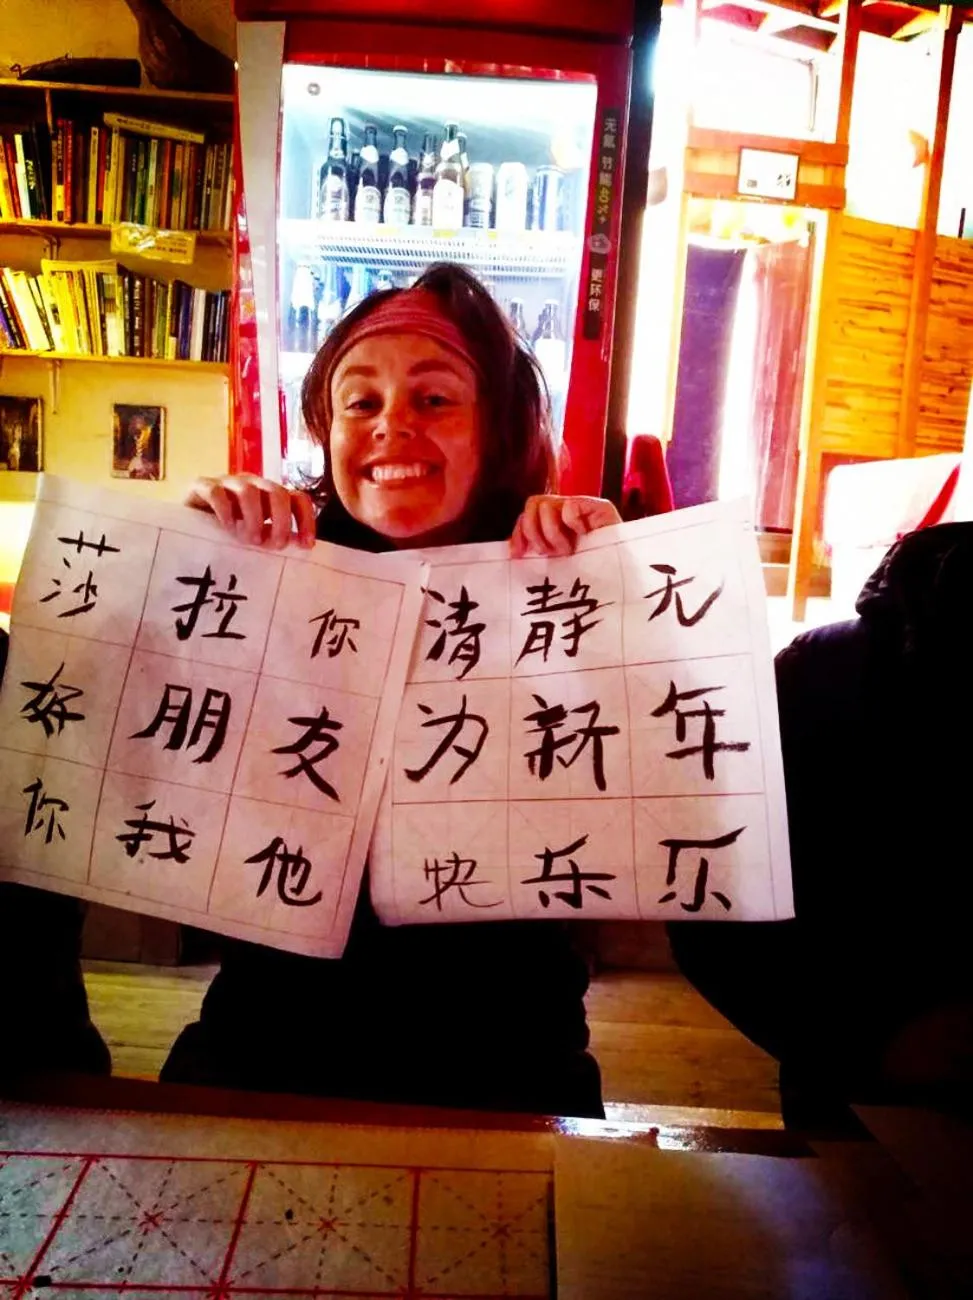 莎拉你
好朋友
你我他
清静无
为新年
快乐乐
无氟 节能40%+
更环保